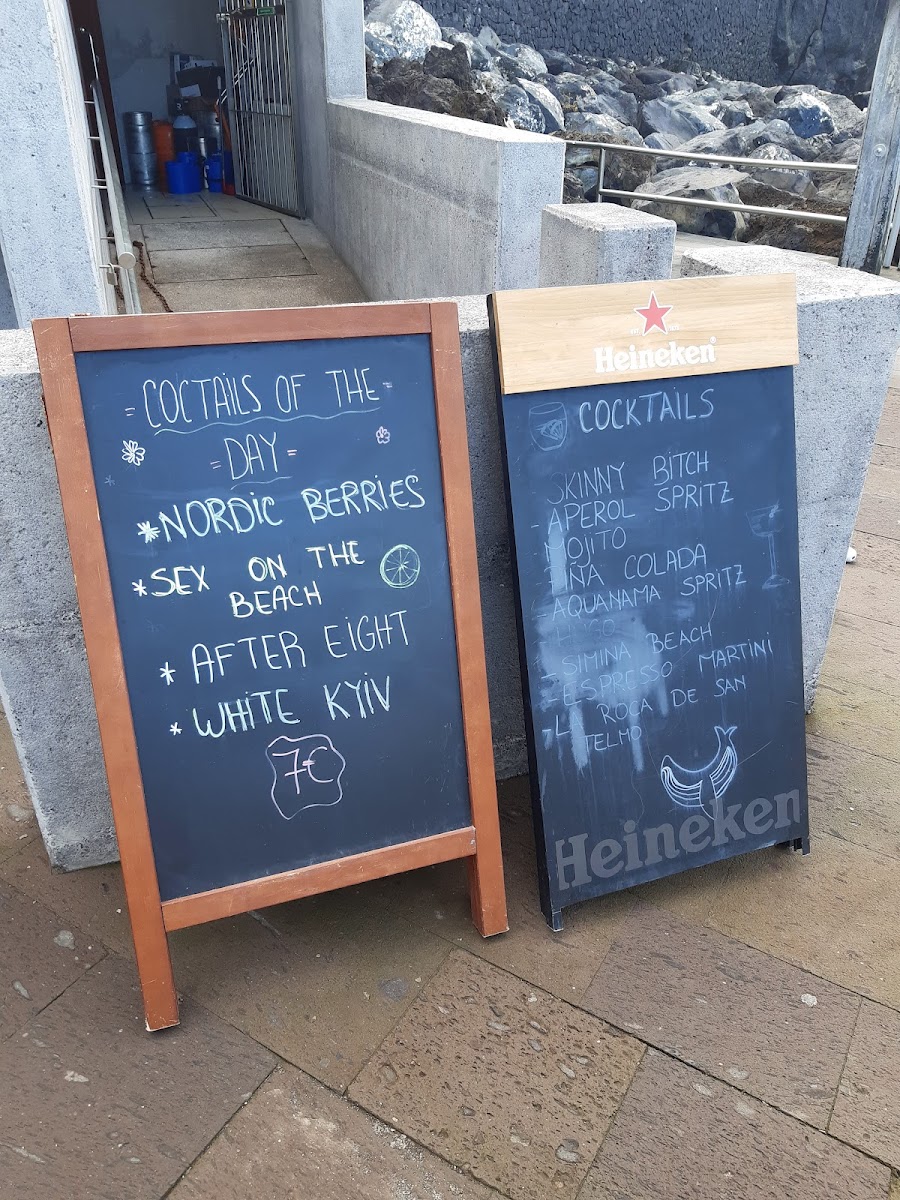 COCTAILS OF THE
DAY
*NORDIC BERRIES
*SEX ON THE
BEACH
* AFTER EIGHT
* WHITE KYIV
7€
Heineken
COCKTAILS
SKINNY BITCH
-APEROL SPRITZ
MOJITO
COLADA
AQUANAMA SPRITZ
SIMINA BEACH
-ESPRESSO MARTINI
ROCA DE SAN
TELMO
Heineken